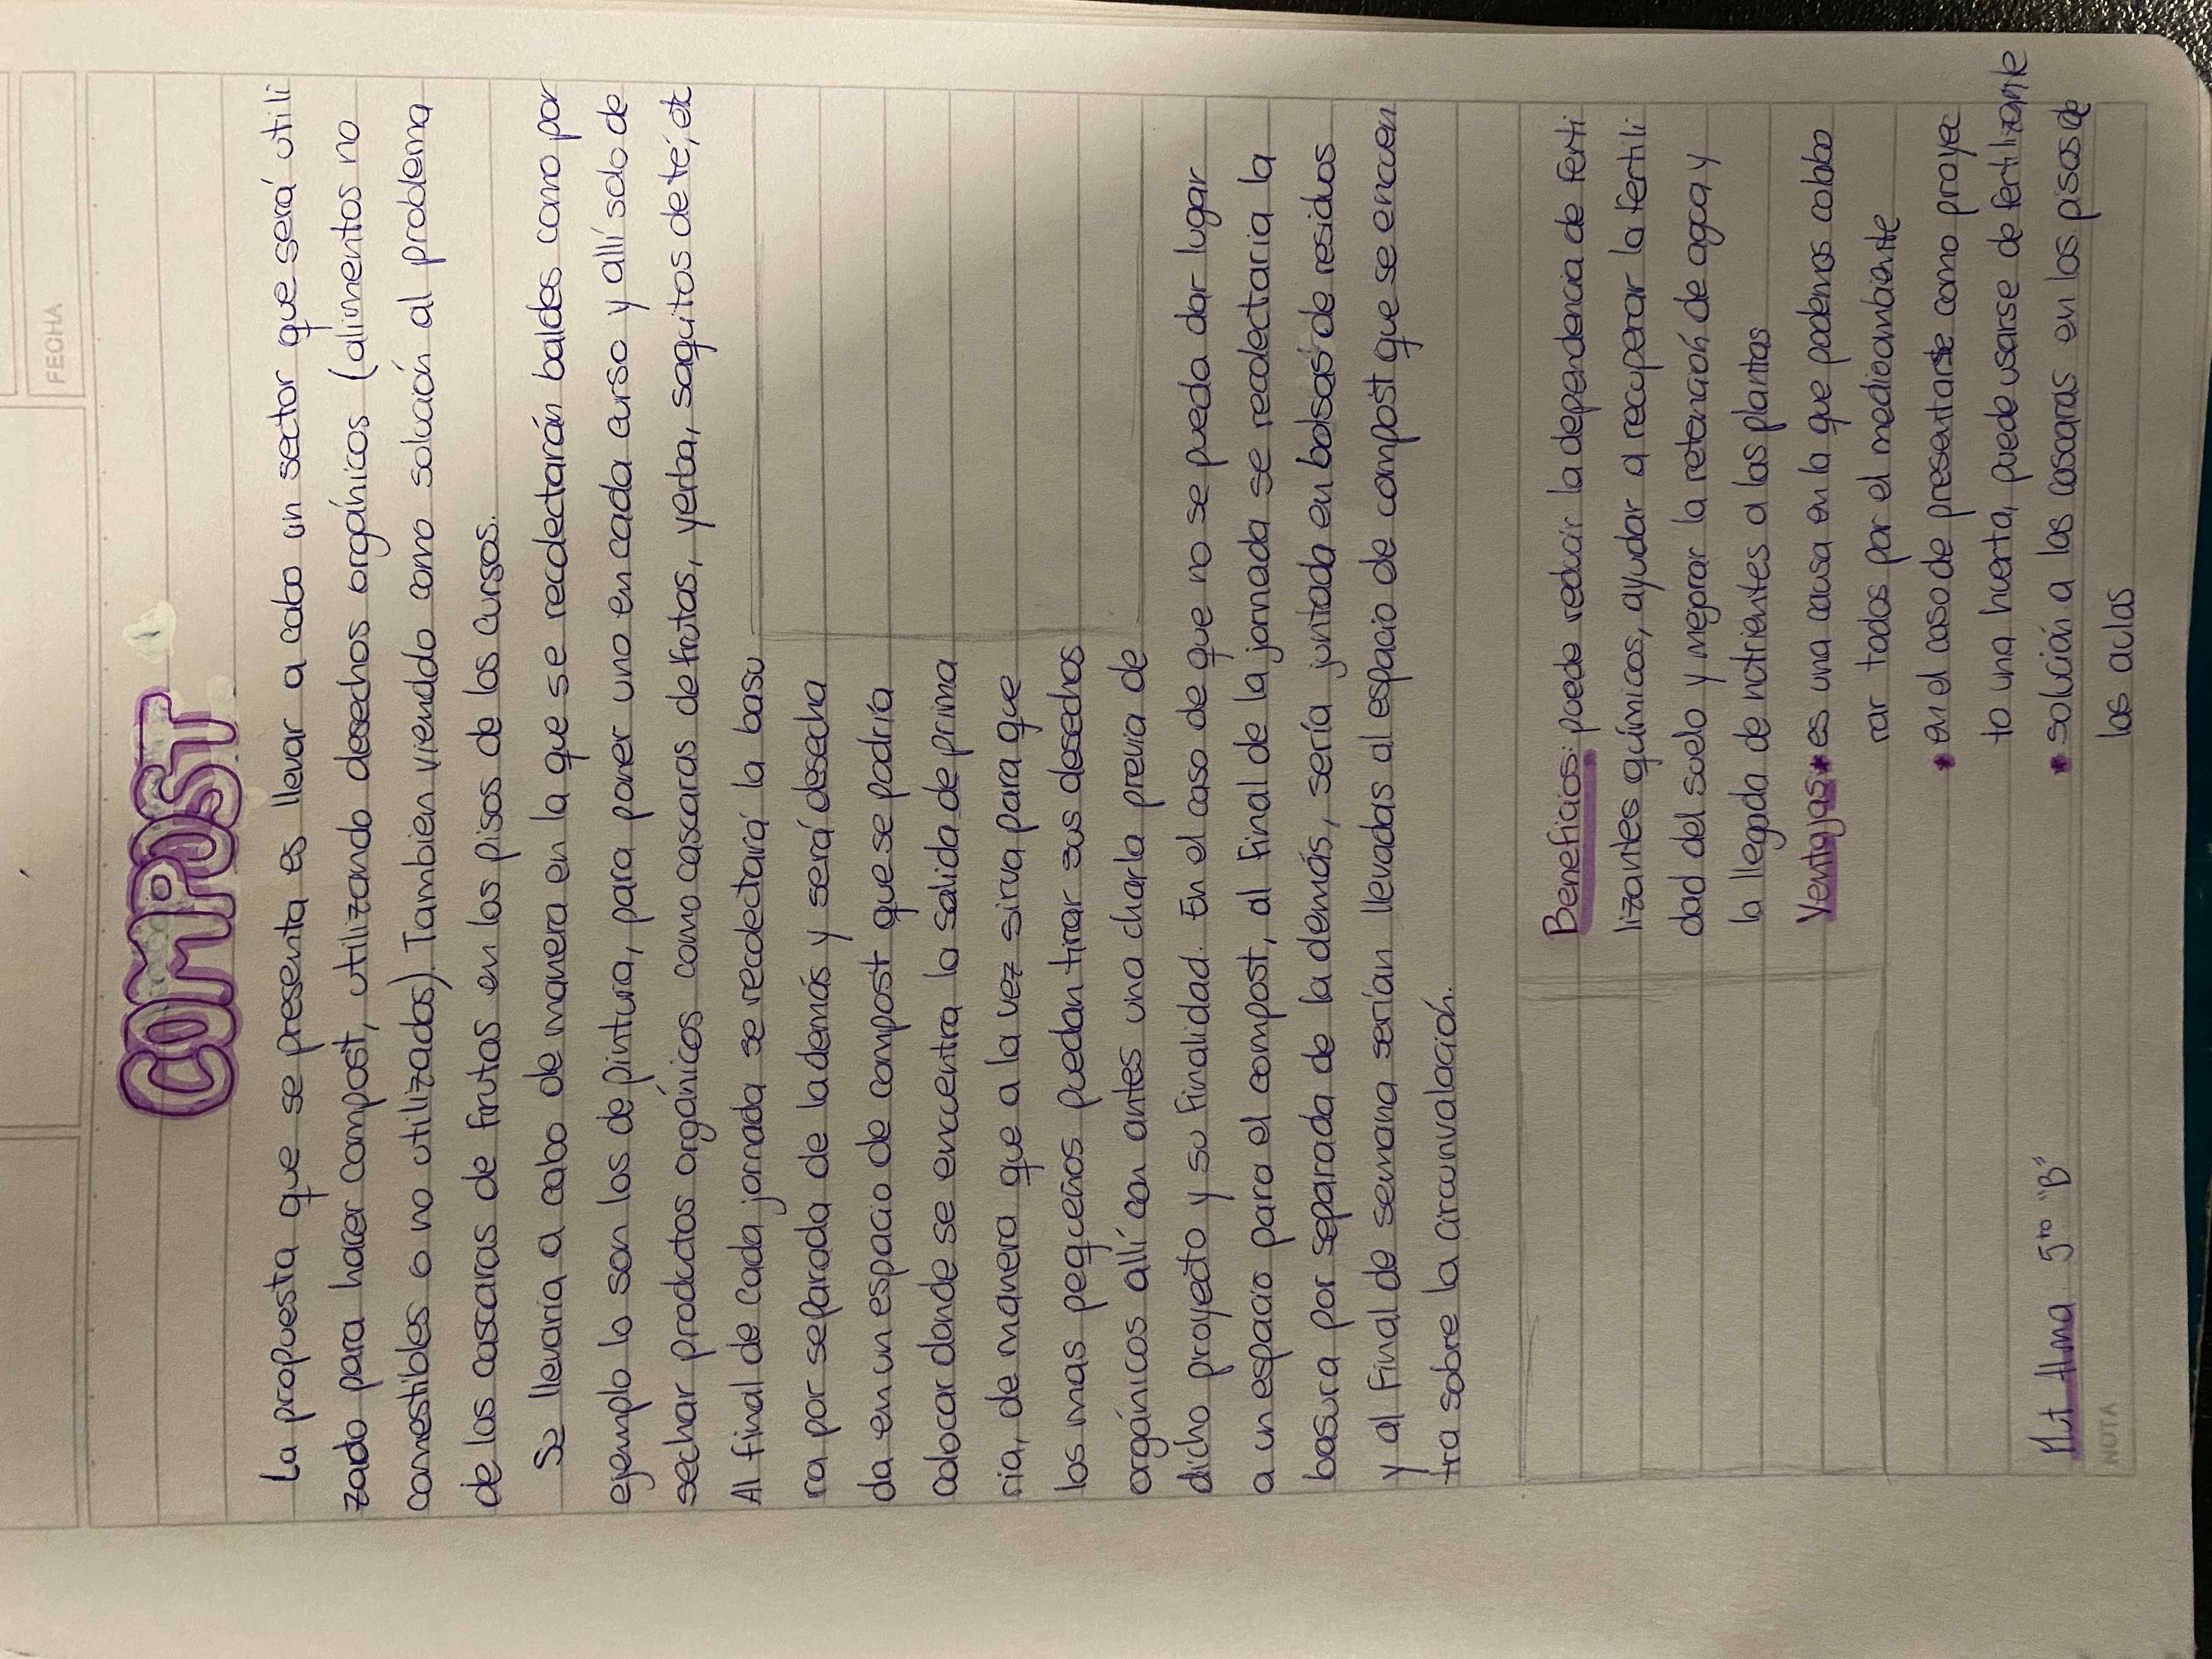 FECHA
COMPOST
La propuesta que se presenta es llevar a cabo un sector que será utili
zado para hacer compost, utilizando desechos orgánicos (alimentos no
comestibles o no utilizados). Tambien viendo como solución al problema
de las cascaras de frutas en los pisos de los cursos.
Se llevaria a cabo de manera en la que se recolectarán baldes como por
ejemplo lo son los de pintura, para poner uno en cada curso y allí solo de
sechar productos orgánicos como cascaras de frutas, yerba, saquitos de té, etc
Al final de cada jornada se recolectará la basu
ra por separada de la demás y será desecha
da en un espacio de compost que se podría
colocar donde se encuentra la salida de prima
ria, de manera que a la vez sirva para que
los mas pequeños puedan tirar sus desechos
orgánicos allí con antes una charla previa de
dicho proyecto y su finalidad. En el caso de que no se pueda dar lugar
a un espacio para el compost, al final de la jornada se recolectaria la
basura por separada de la demás, sería juntada en bolsas de residuos
y al final de semana serían llevadas al espacio de compost que se encuen
tra sobre la circunvalación.
Beneficios: puede reducir la dependencia de ferti
lizantes químicos, ayudar a recuperar la fertili
dad del suelo y mejorar la retención de agua y
la llegada de nutrientes a las plantas
Ventajas * es una causa en la que podemos colabo
rar todos por el medioambiente
* en el caso de presentarse como proyec
to una huerta, puede usarse de fertilizante
* solución a las cascaras en los pisos de
las aulas
Alma 5to "B"
NOTA